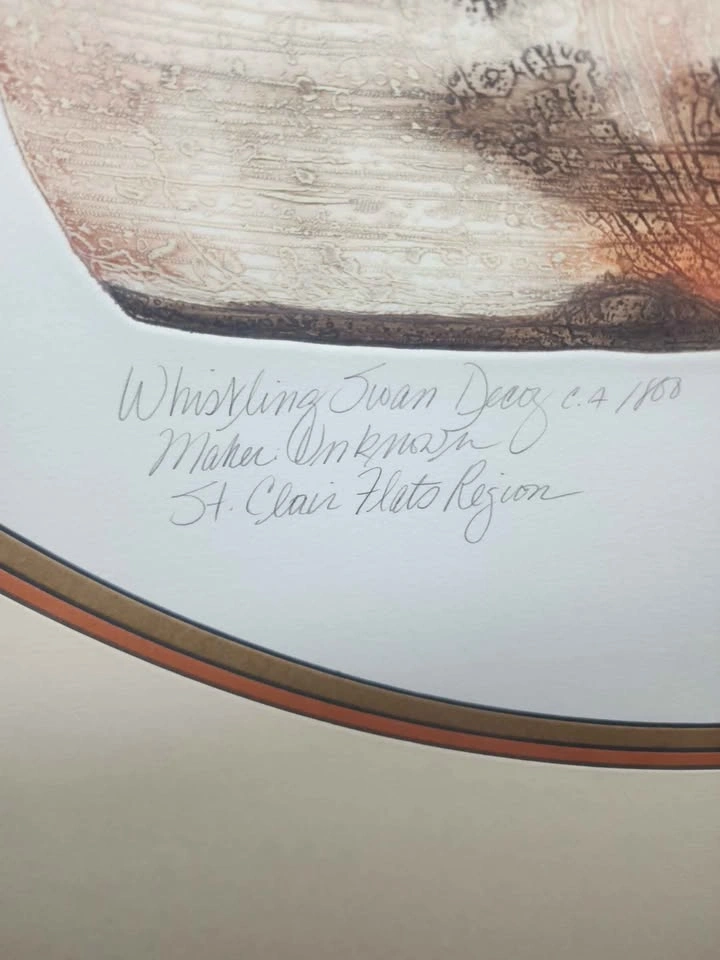 Whistling Swan Decoy C.A 1800
Maker Unknown
St. Clair Flats Region